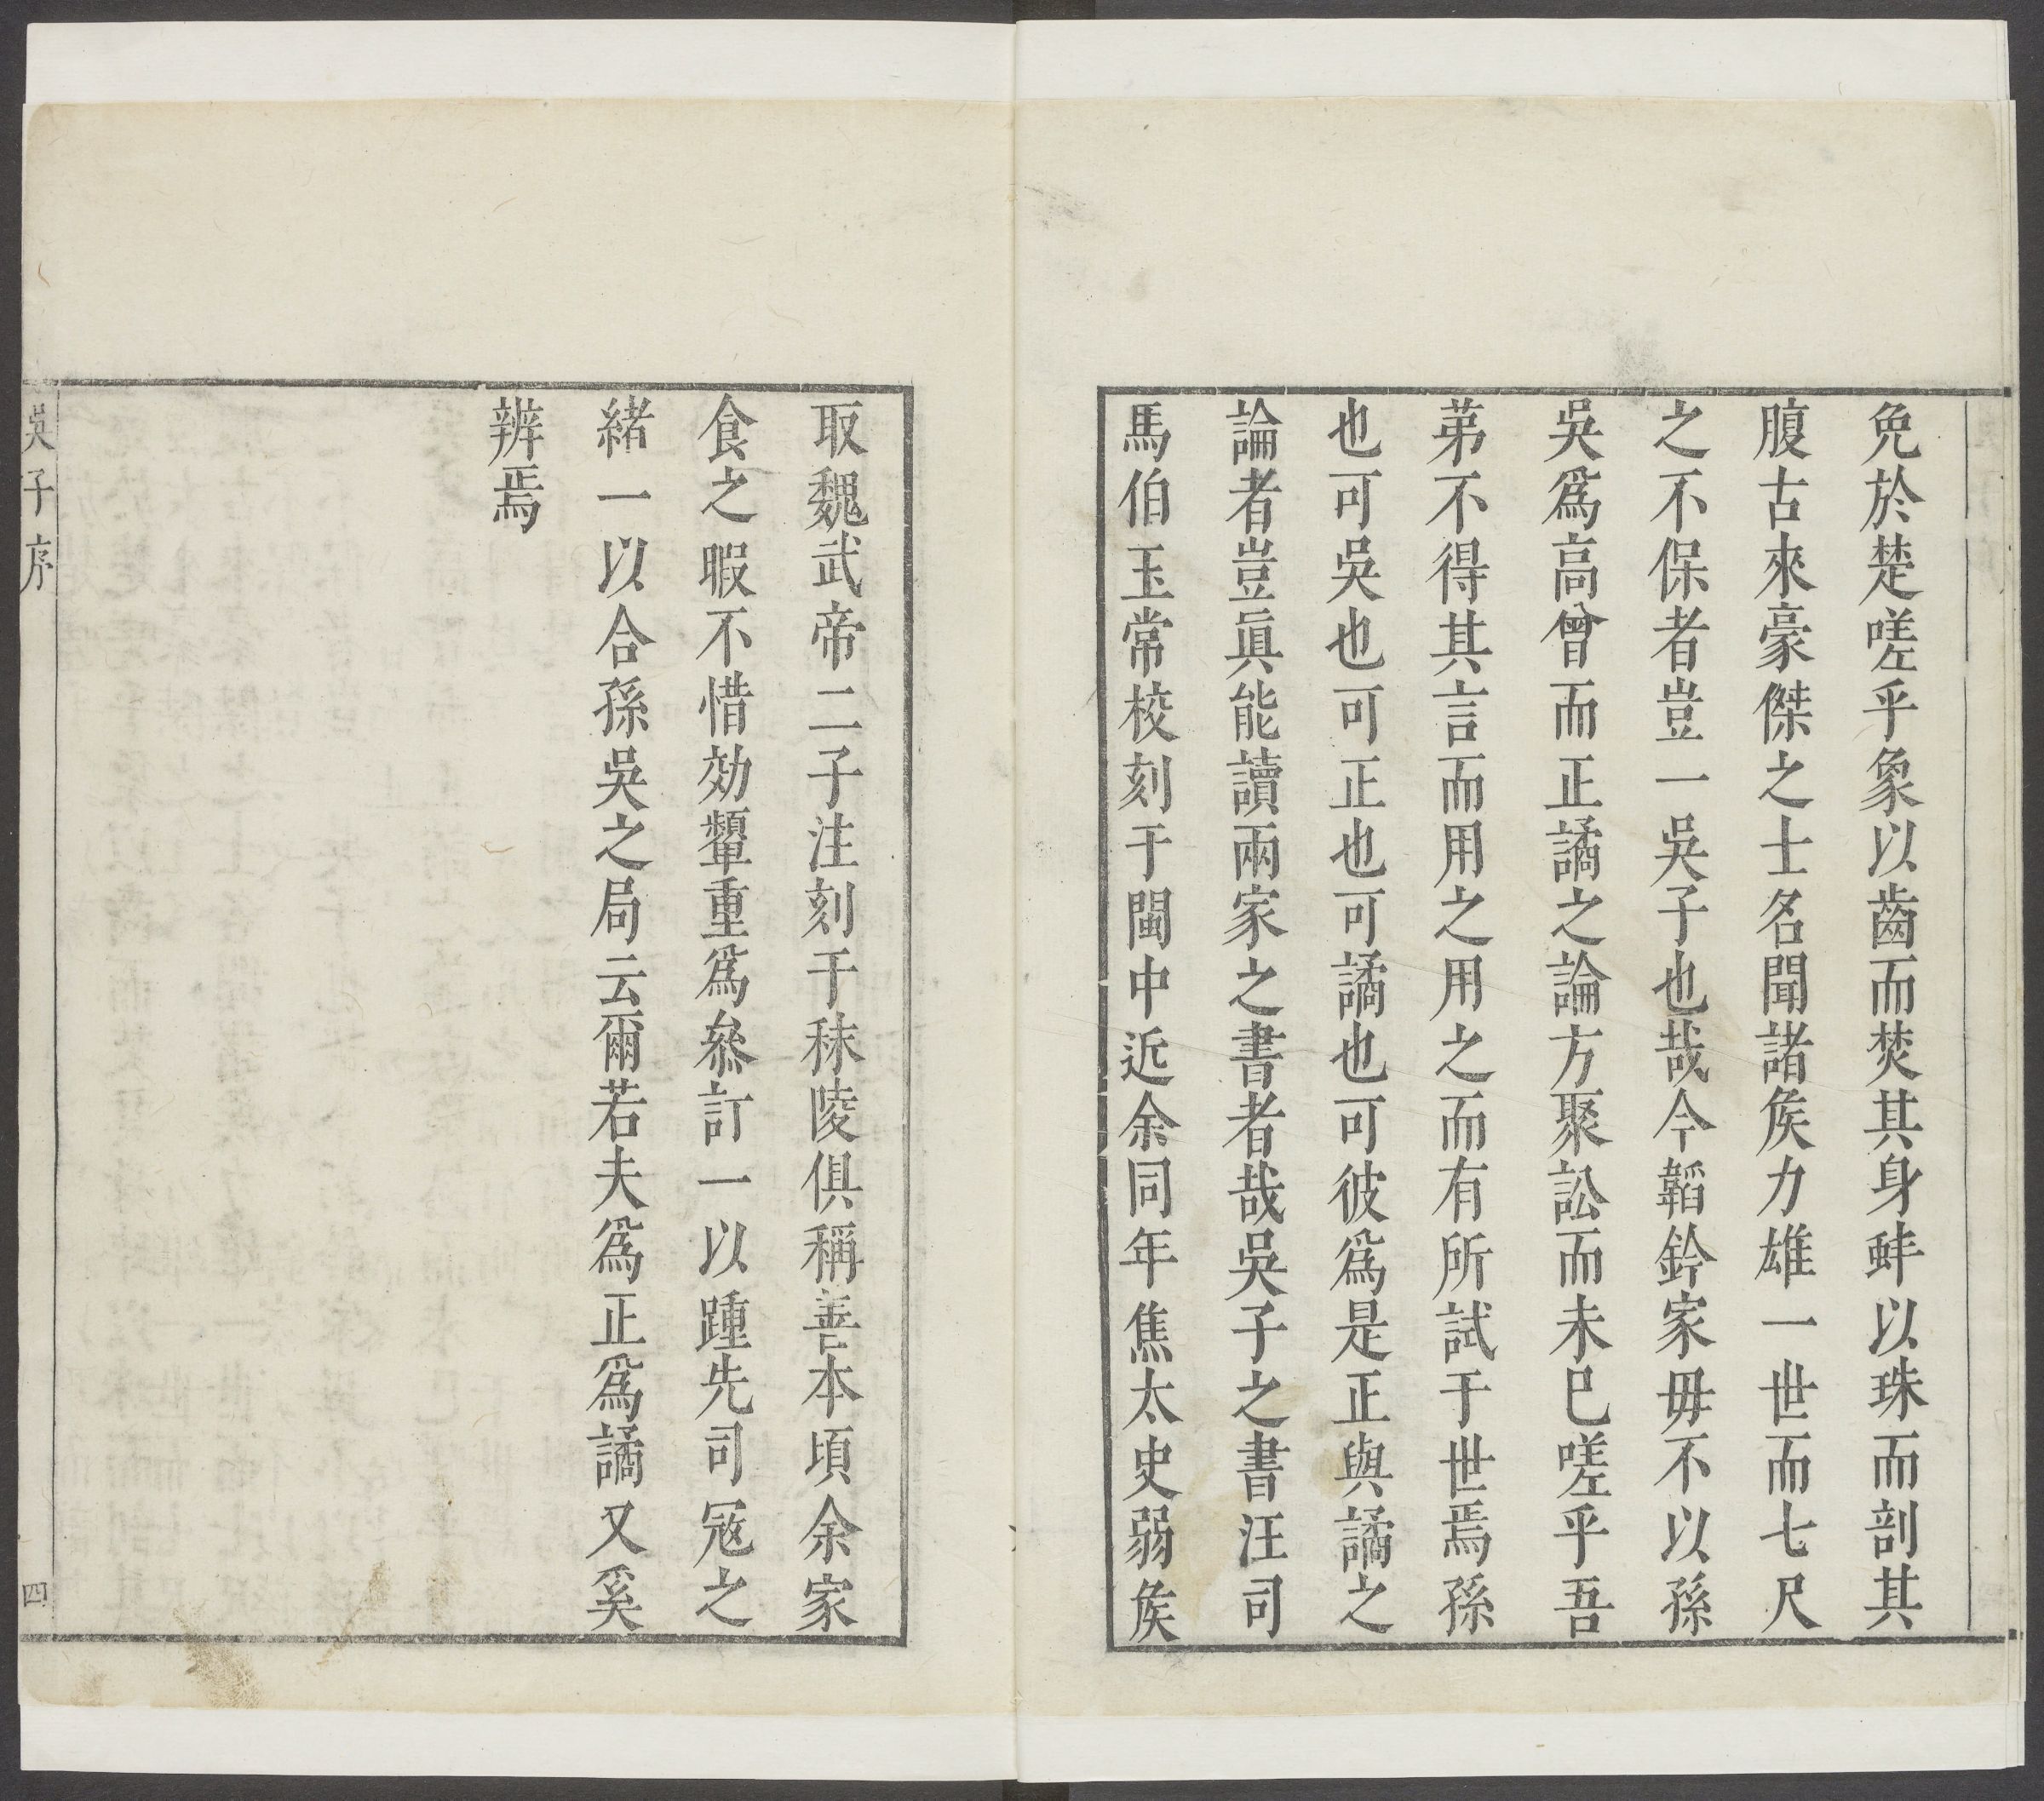 免於楚嗟乎象以齒而焚其身蚌以珠而剖其
腹古來豪傑之士名聞諸矦力雄一世而七尺
之不保者豈一吳子也哉今韜鈐家毋不以孫
吳爲高曾而正譎之論方聚訟而未巳嗟乎吾
苐不得其言而用之用之而有所試于世焉孫
也可吳也可正也可譎也可彼爲是正與譎之
論者豈眞能讀兩家之書者哉吳子之書汪司
馬伯玉常校刻于閩中近余同年焦太史弱矦
取魏武帝二子注刻于秣陵俱稱善本頃余家
食之暇不惜効顰重爲叅訂一以踵先司寇之
緒一以合孫吳之局云爾若夫爲正爲譎又奚
辨焉
吳子序
四